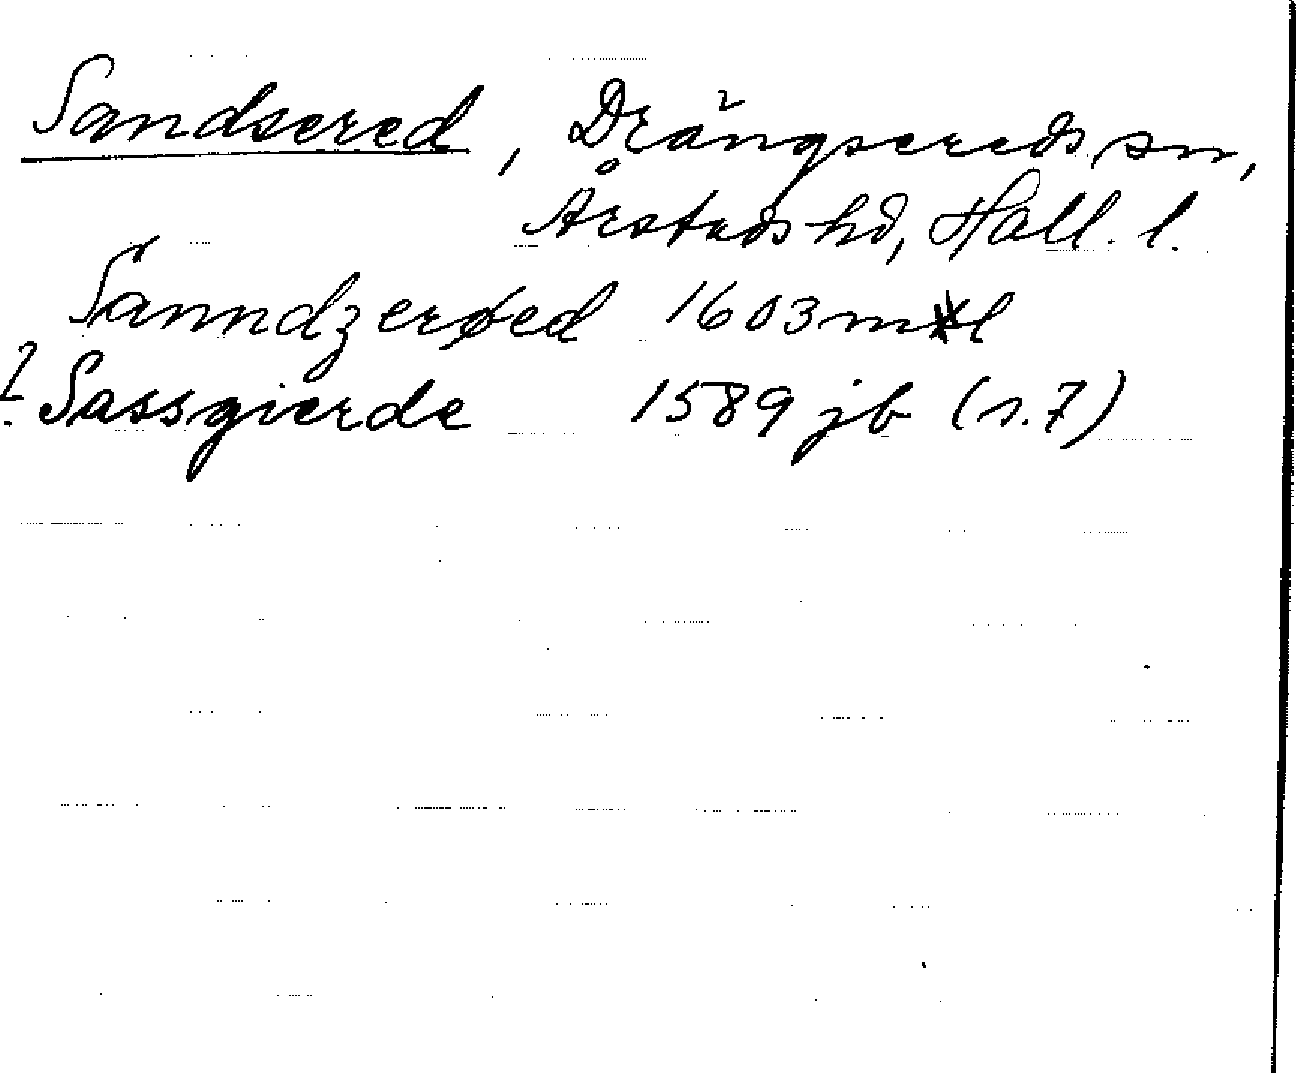 Sandsered, Drängsereds sn,
Årstads hd, Hall. l.
Sanndzerøed 1603 mtl
? Sassgierde 1589 jb (s. 7)